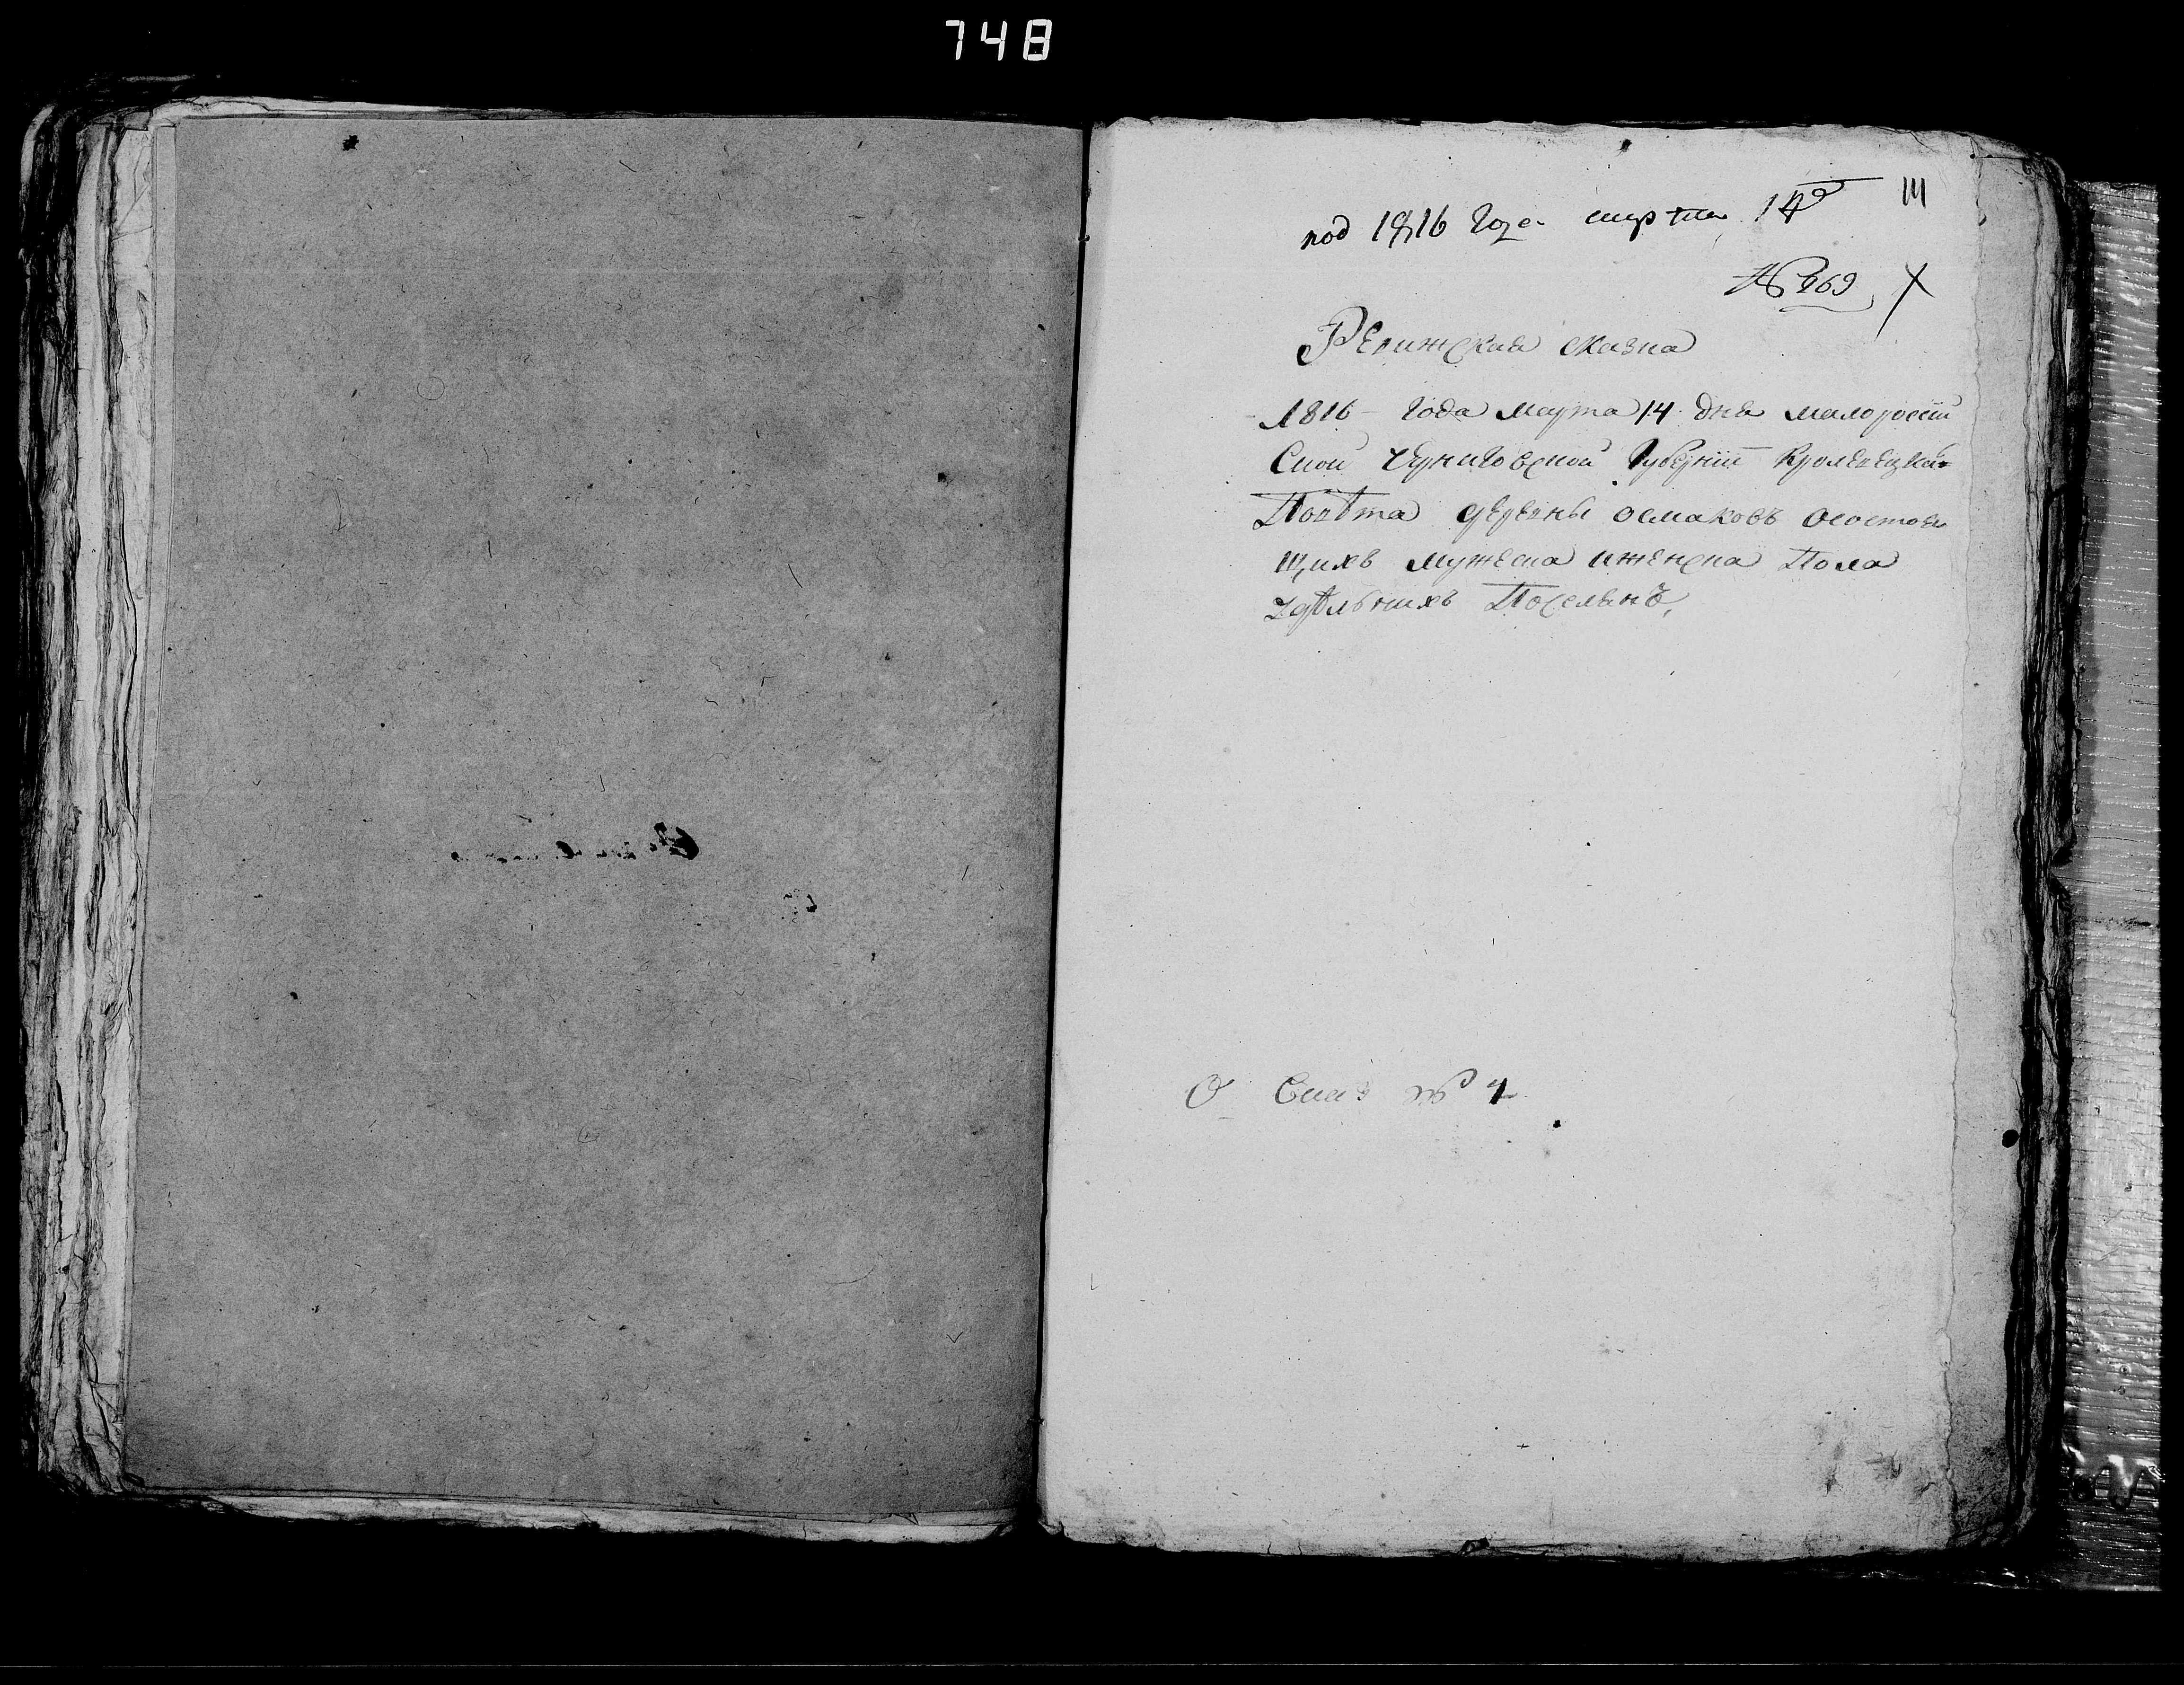 748
111
под 1816 Года марта 14го
№ 269
Ревижская сказка
1816 Года марта 14 дня малоросій
Ской Черниговской Губерніи Кролевецкаго
Повѣта деревны осмаковъ осостоя
щихъ мужеска иженска Пола
удѣльнихъ Поселянъ,
№ 4